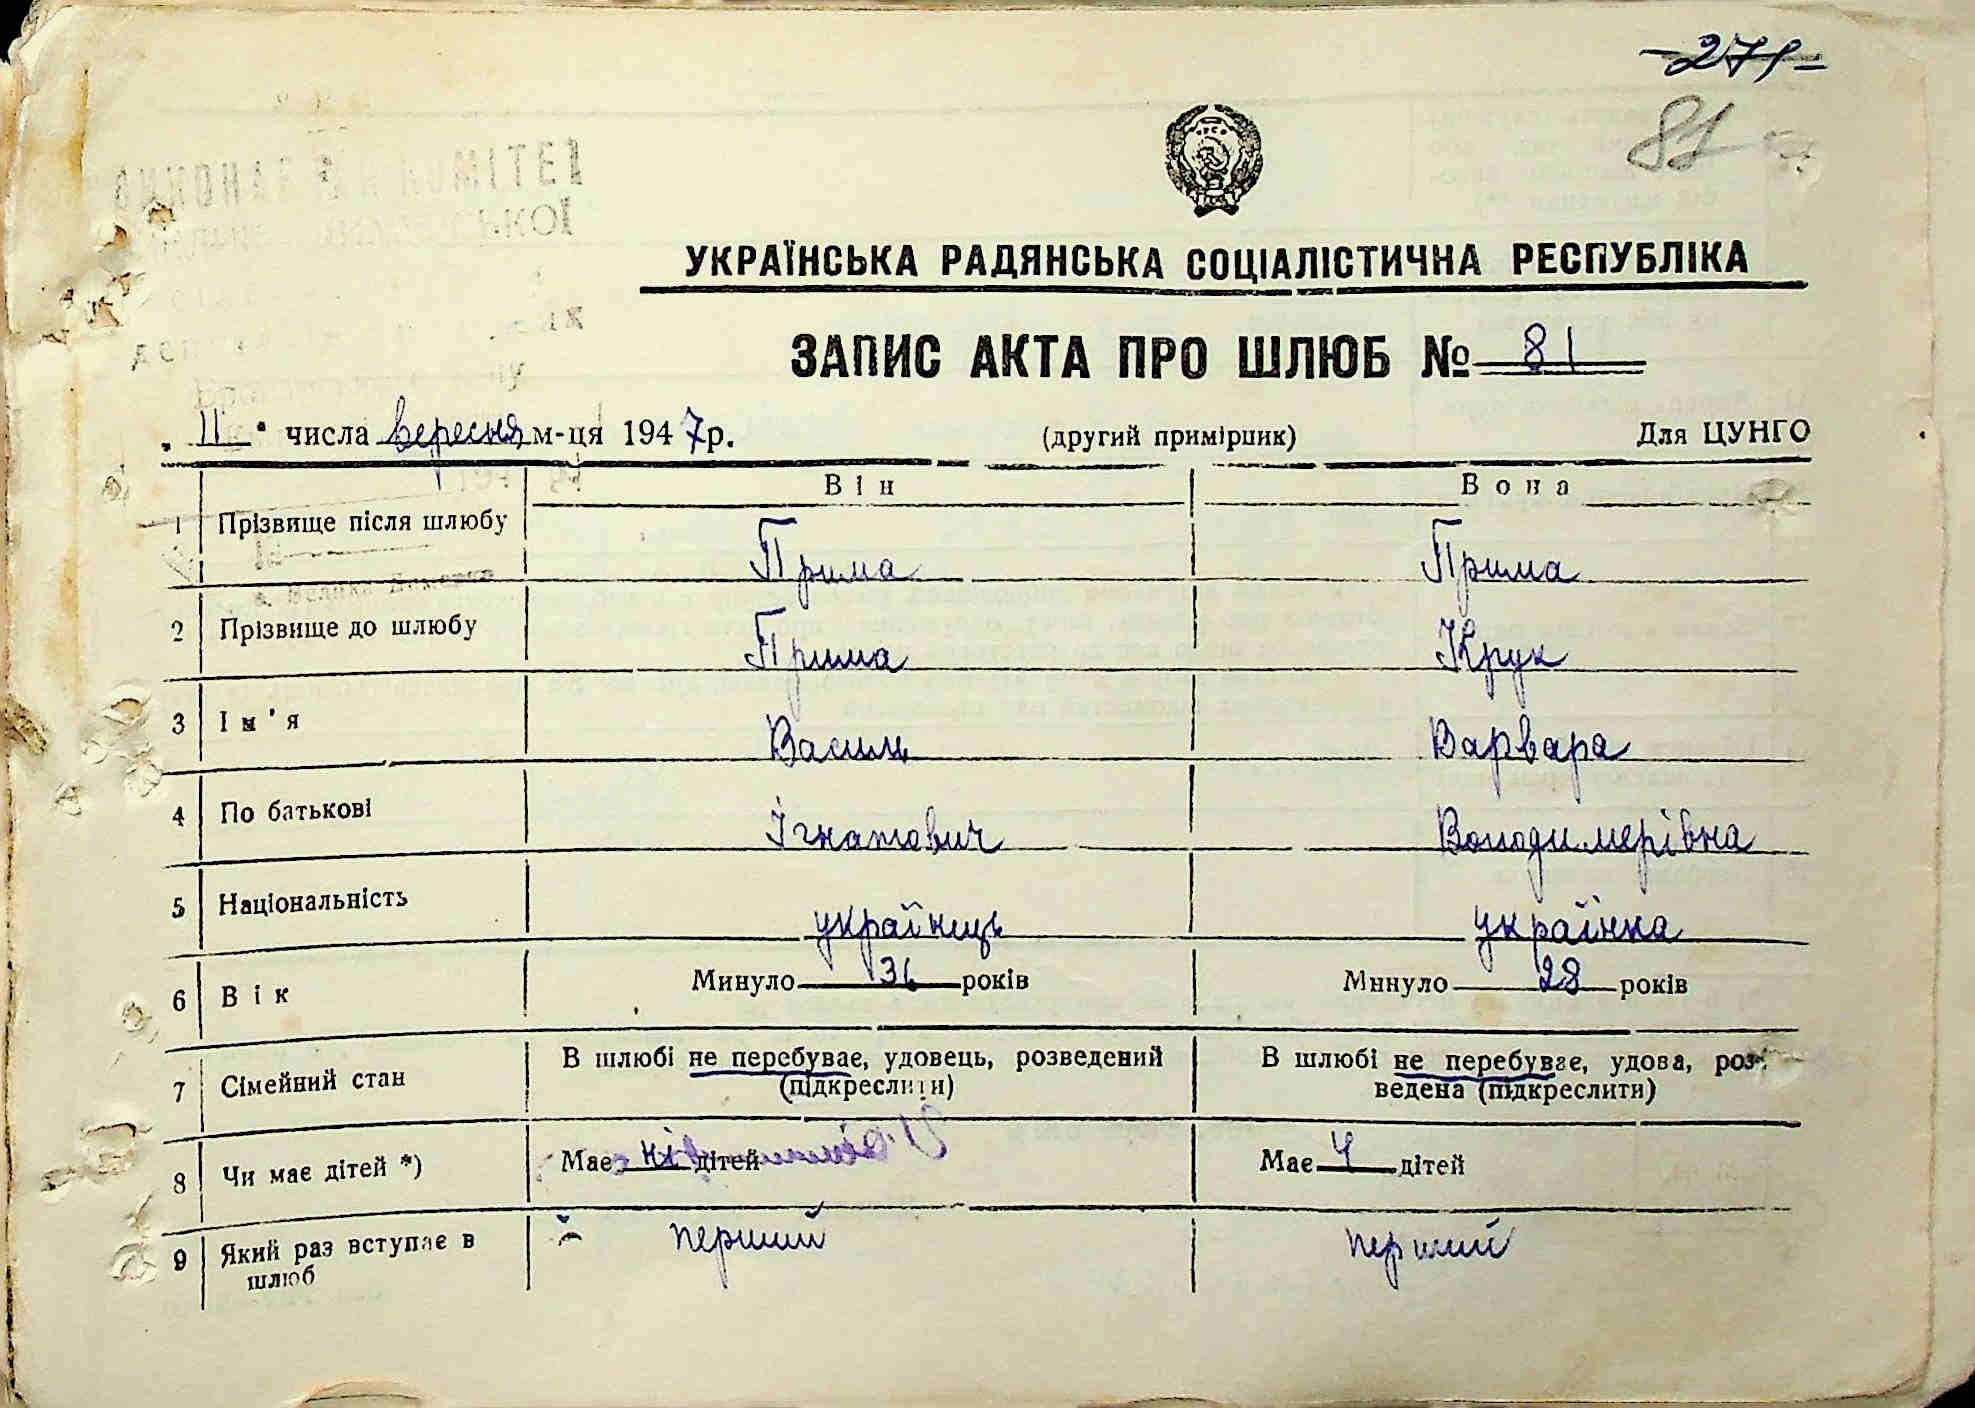 -271-
81
УКРАЇНСЬКА РАДЯНСЬКА СОЦІАЛІСТИЧНА РЕСПУБЛІКА
ЗАПИС АКТА ПРО ШЛЮБ № 81
„ 11 " числа вересня м-ця 1947 р. (другий примірник) Для ЦУНГО
Він Вона
1 Прізвище після шлюбу Прима Прима
2 Прізвище до шлюбу Прима Крук
3 Ім'я Василь Варвара
4 По батькові Ігнатович Володимерівна
5 Національність українець українка
6 Вік Минуло 31 років Минуло 28 років
7 Сімейний стан В шлюбі не перебуває, удовець, розведений (підкреслити) В шлюбі не перебуває, удова, розведена (підкреслити)
8 Чи має дітей *) Має ні дітей Має дітей
9 Який раз вступає в шлюб перший перший